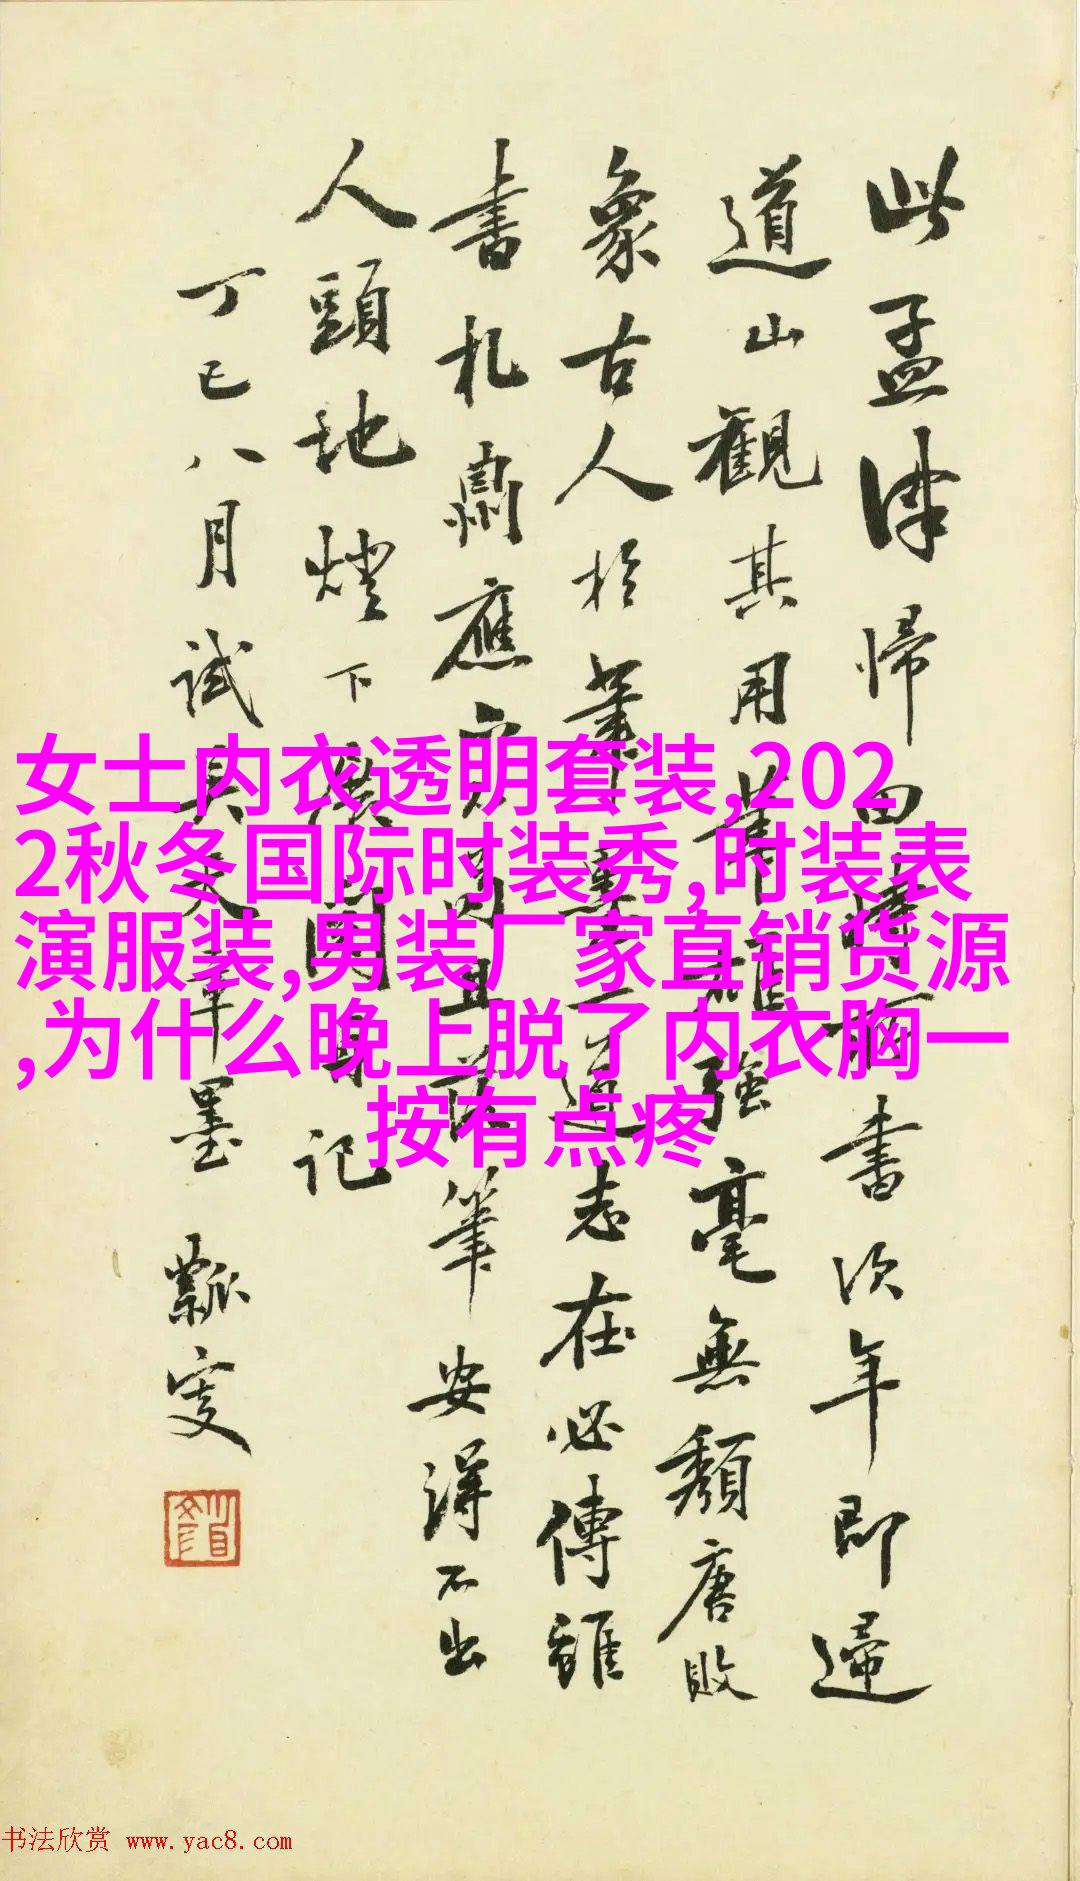 此孟津歸田時所書次年即還
道山觀其用筆雄強毫無頹唐敗
象古人於筆墨一道志在必傳雖
書札肅應亦
且落筆安得不出
人頭地燈下
記
丁巳八月試
年墨
瓢叟
女士内衣透明套装,202
2秋冬国际时装秀,时装表
演服装,男装厂家直销货源
,为什么晚上脱了内衣胸一
按有点疼
书法欣赏 www.yac8.com